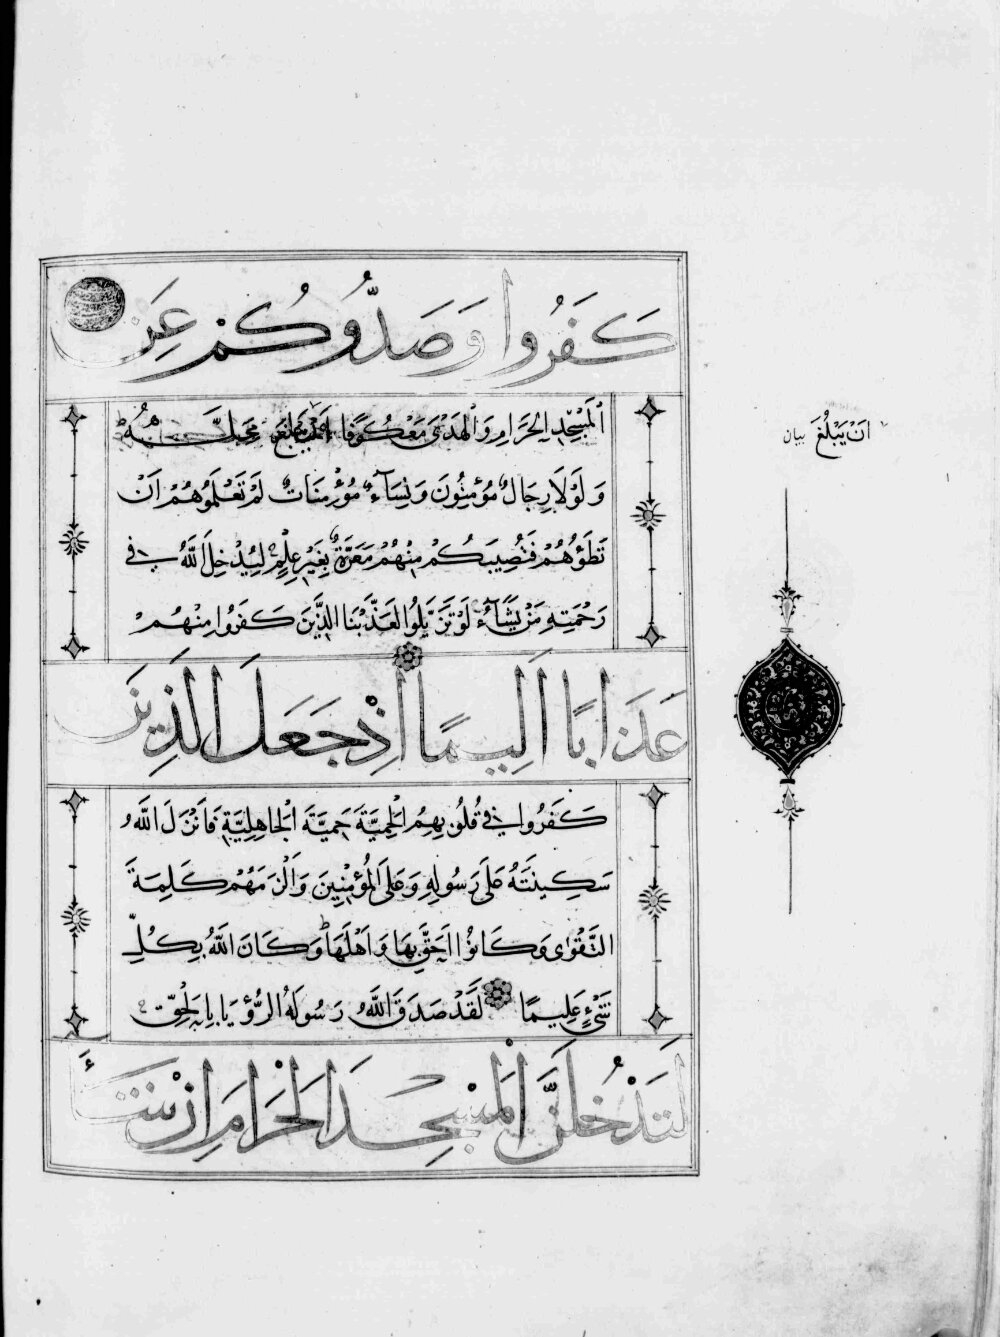 كَفَرُوا وَصَدُّوكُمْ عَنِ
الْمَسْجِدِ الْحَرَامِ وَالْهَدْىَ مَعْكُوفًا مَحِلَّهُ
وَلَوْلَا رِجَالٌ مُؤْمِنُونَ وَنِسَاءٌ مُؤْمِنَاتٌ لَمْ تَعْلَمُوهُمْ اَنْ
تَطَؤُهُمْ فَتُصِيبَكُمْ مِنْهُمْ مَعَرَّةٌ بِغَيْرِ عِلْمٍ لِيُدْخِلَ اللَّهُ فِي
رَحْمَتِهِ مَنْ يَشَاءُ لَوْ تَزَيَّلُوا لَعَذَّبْنَا الَّذِينَ كَفَرُوا مِنْهُمْ
عَذَابًا اَلِيمًا اِذْ جَعَلَ الَّذِينَ
كَفَرُوا فِي قُلُوبِهِمُ الْحَمِيَّةَ حَمِيَّةَ الْجَاهِلِيَّةِ فَاَنْزَلَ اللَّهُ
سَكِينَتَهُ عَلَى رَسُولِهِ وَعَلَى الْمُؤْمِنِينَ وَاَلْزَمَهُمْ كَلِمَةَ
التَّقْوٰى وَكَانُوا اَحَقَّ بِهَا وَاَهْلَهَا وَكَانَ اللَّهُ بِكُلِّ
شَيْءٍ عَلِيمًا لَقَدْ صَدَقَ اللَّهُ رَسُولَهُ الرُّؤْيَا بِالْحَقِّ
لَتَدْخُلُنَّ الْمَسْجِدَ الْحَرَامَ اِنْ شَاءَ
اَنْ يَبْلُغَ بيان